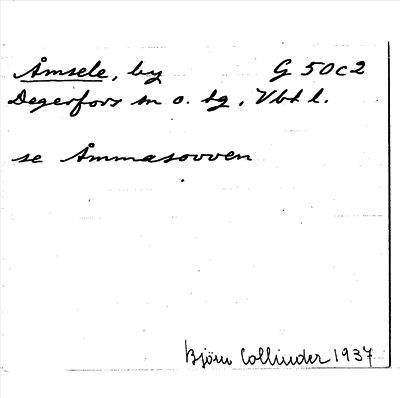 Åmsele, by G 50c2
Degerfors sn o. tg, Vbt l.
se Åmmasovven
Björn Collinder 1937